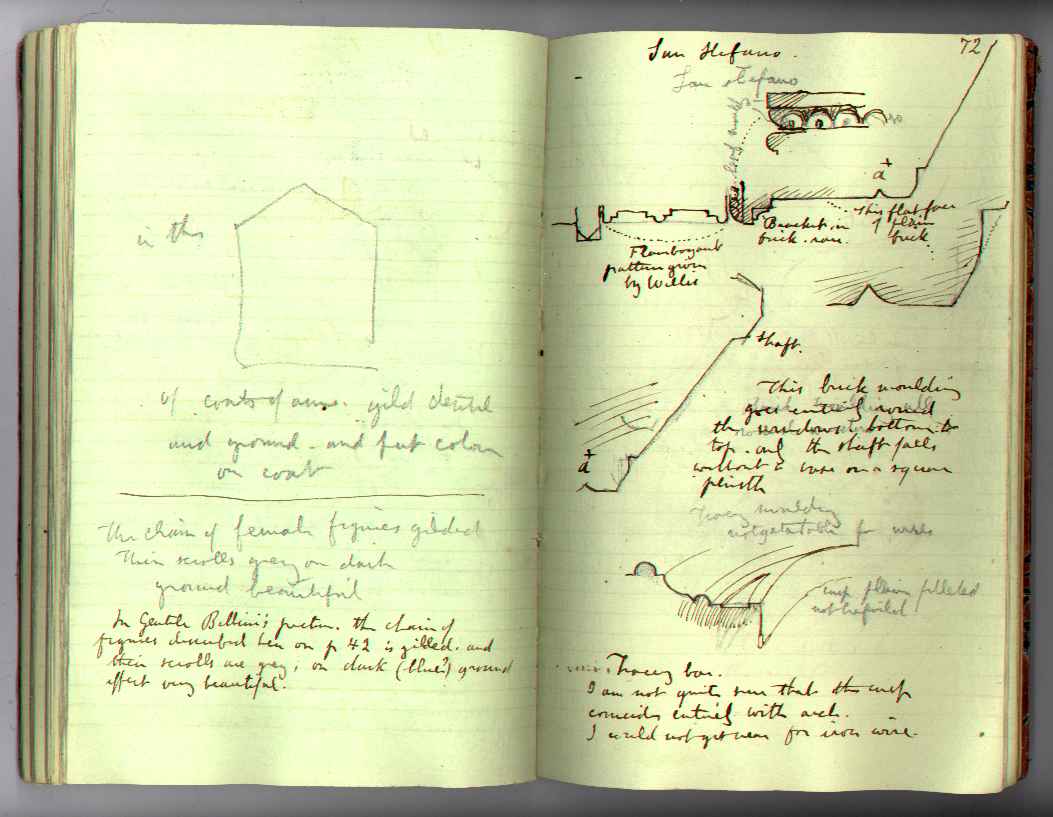 in this
of coats of arms. gild dental
and ground. and put colour
on coat
The chain of female figures gilded
Their scrolls grey on dark
ground beautiful
In Gentile Bellini's picture. the chain of
figures described here on p 42 is gilded. and
their scrolls are grey, on dark (blue?) ground
effect very beautiful.
72
San Stefano.
San Stefano
a
This flat face
of plain
brick
Bracket in
brick.
Flamboyant
pattern given
by Willis
shaft.
This brick moulding
goes entirely round
the windows bottom to
top. and the shaft falls
without a base on a square
plinth
a
Tracery moulding
not getatable for wires
cusp plain filleted
not
Tracery bar.
I am not quite sure that the cusp
coincides entirely with arch.
I could not get near for iron wire.